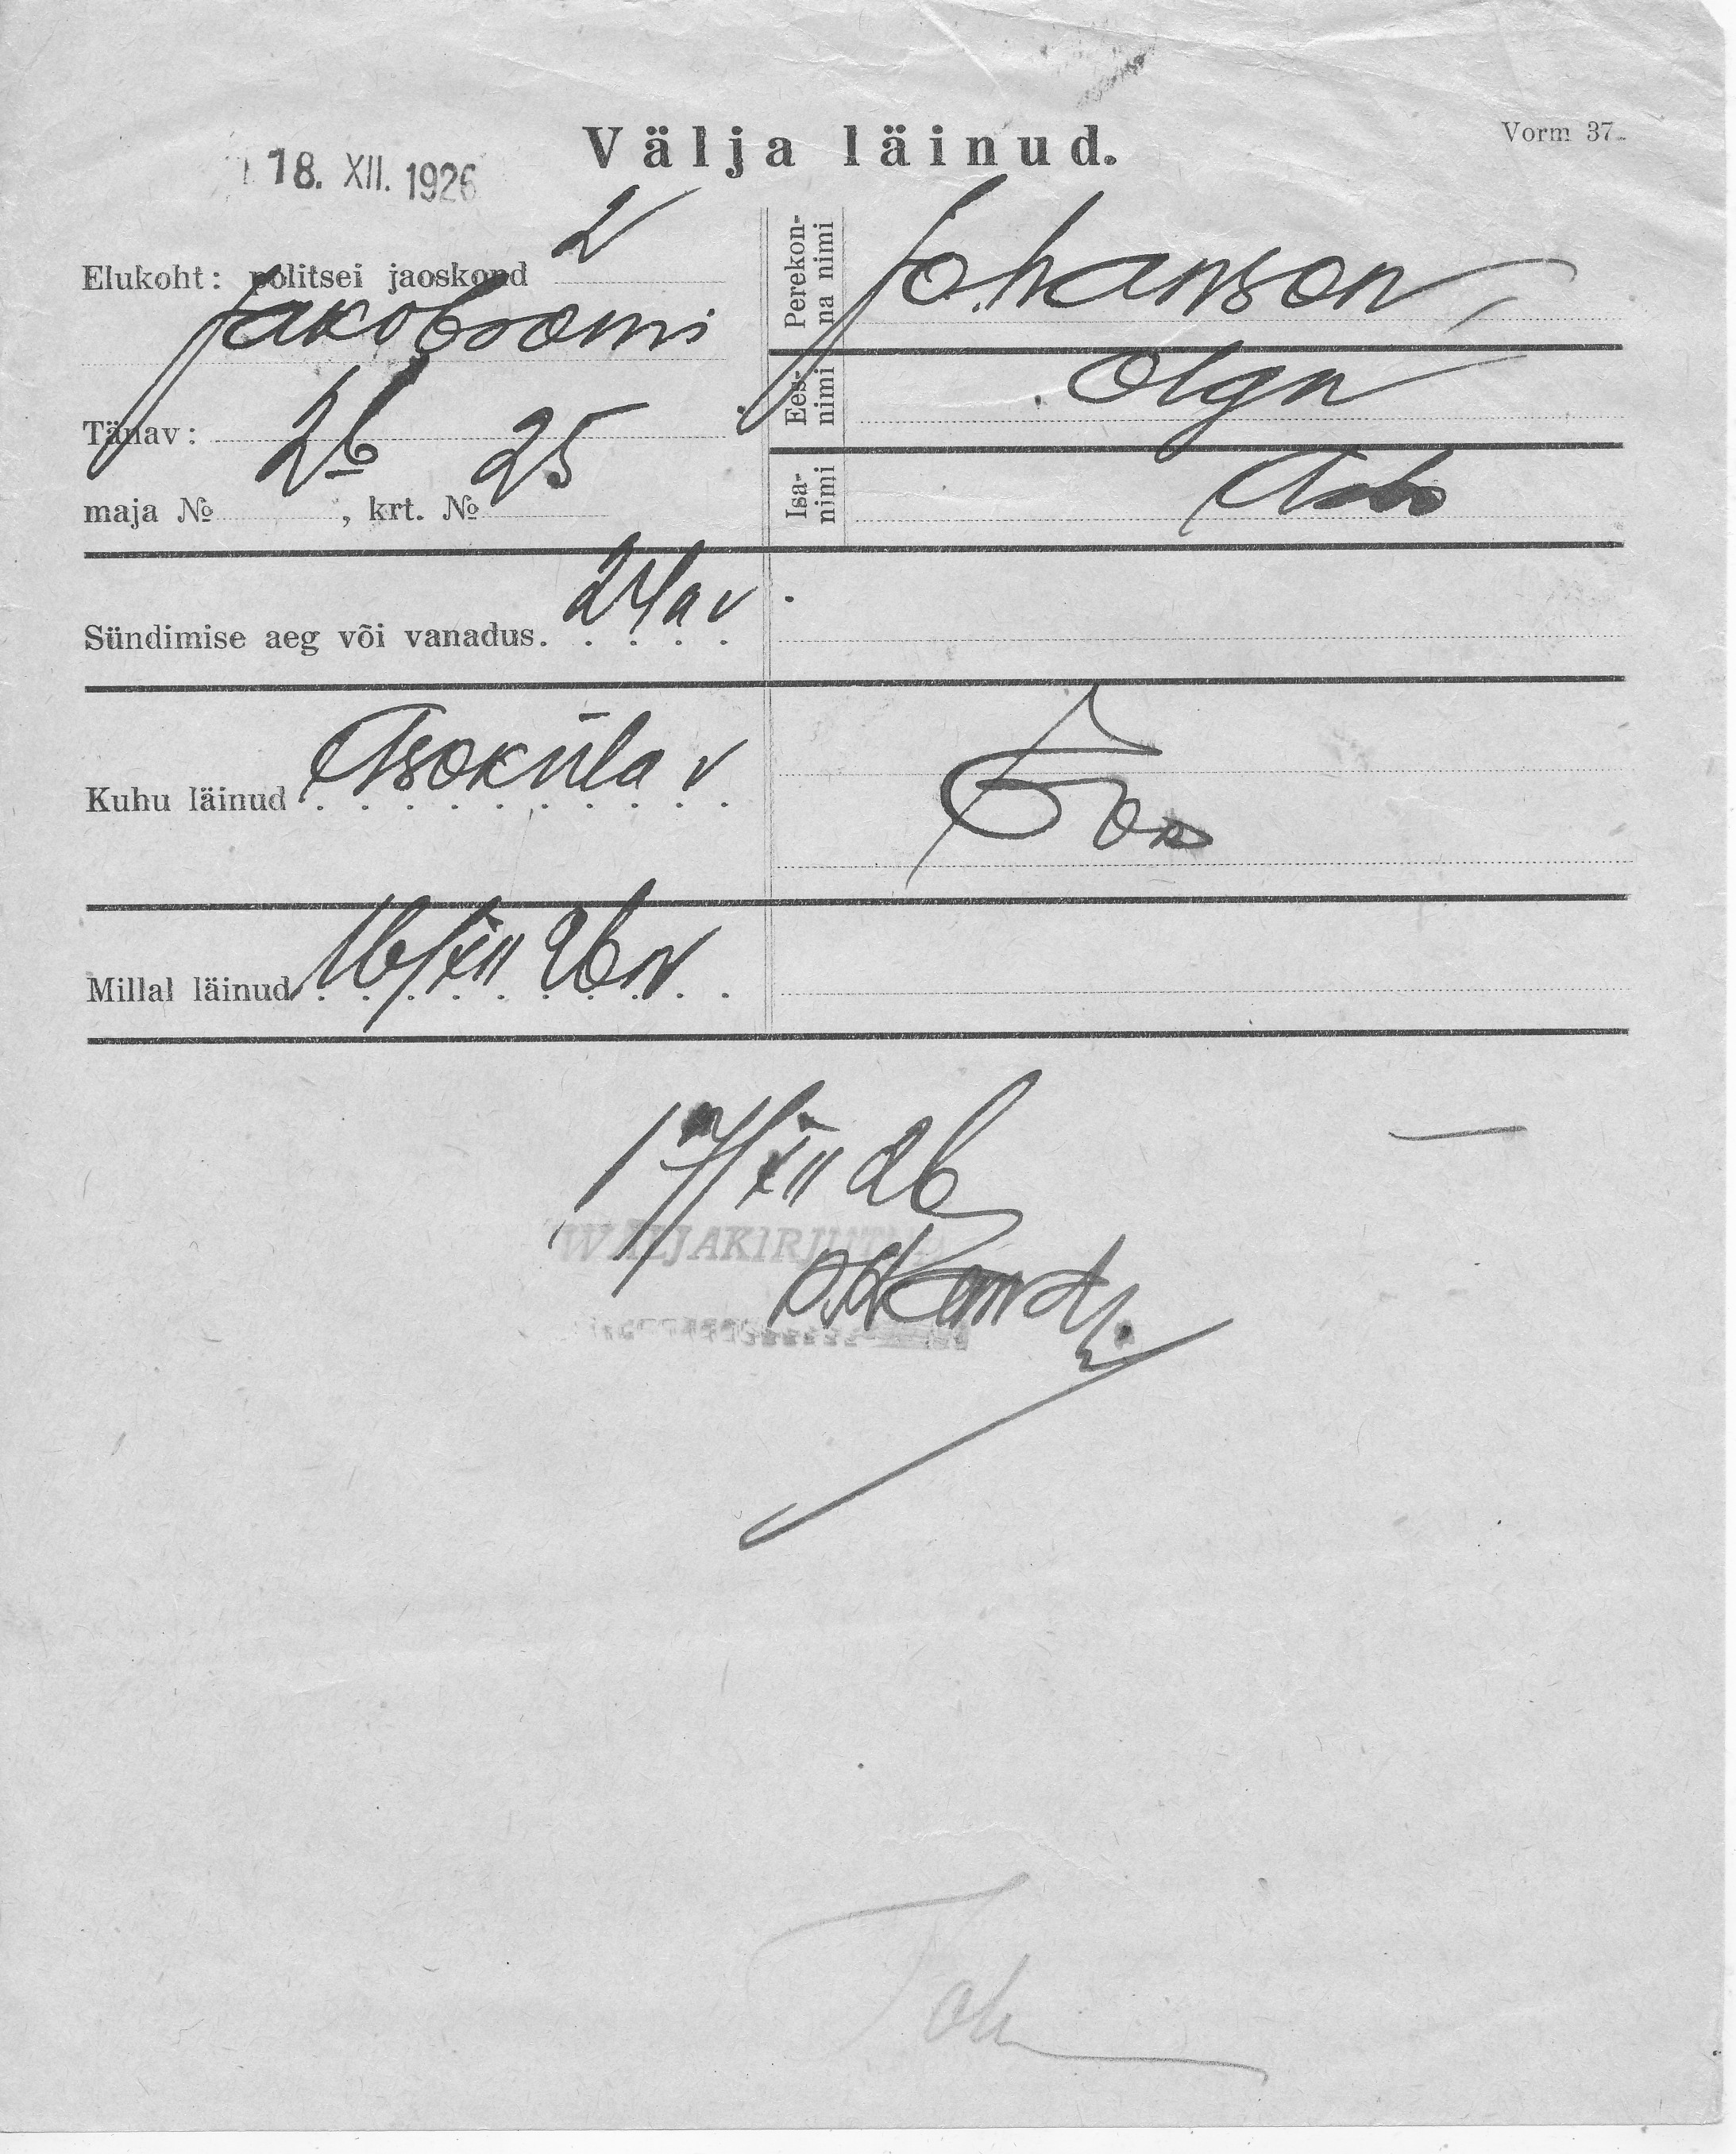 Välja läinud.
Vorm 37.
18. XII. 1926
Elukoht: politsei jaoskond 2
Jakobsoni
Tänav:
maja № 26, krt. № 25
Perekon-
na nimi
Johanson
Ees-
nimi
Olga
Isa-
nimi
Sündimise aeg või vanadus. 24 a v.
Kuhu läinud
Millal läinud 16/XII 26 a
17/XII 26
WÄLJAKIRJUT